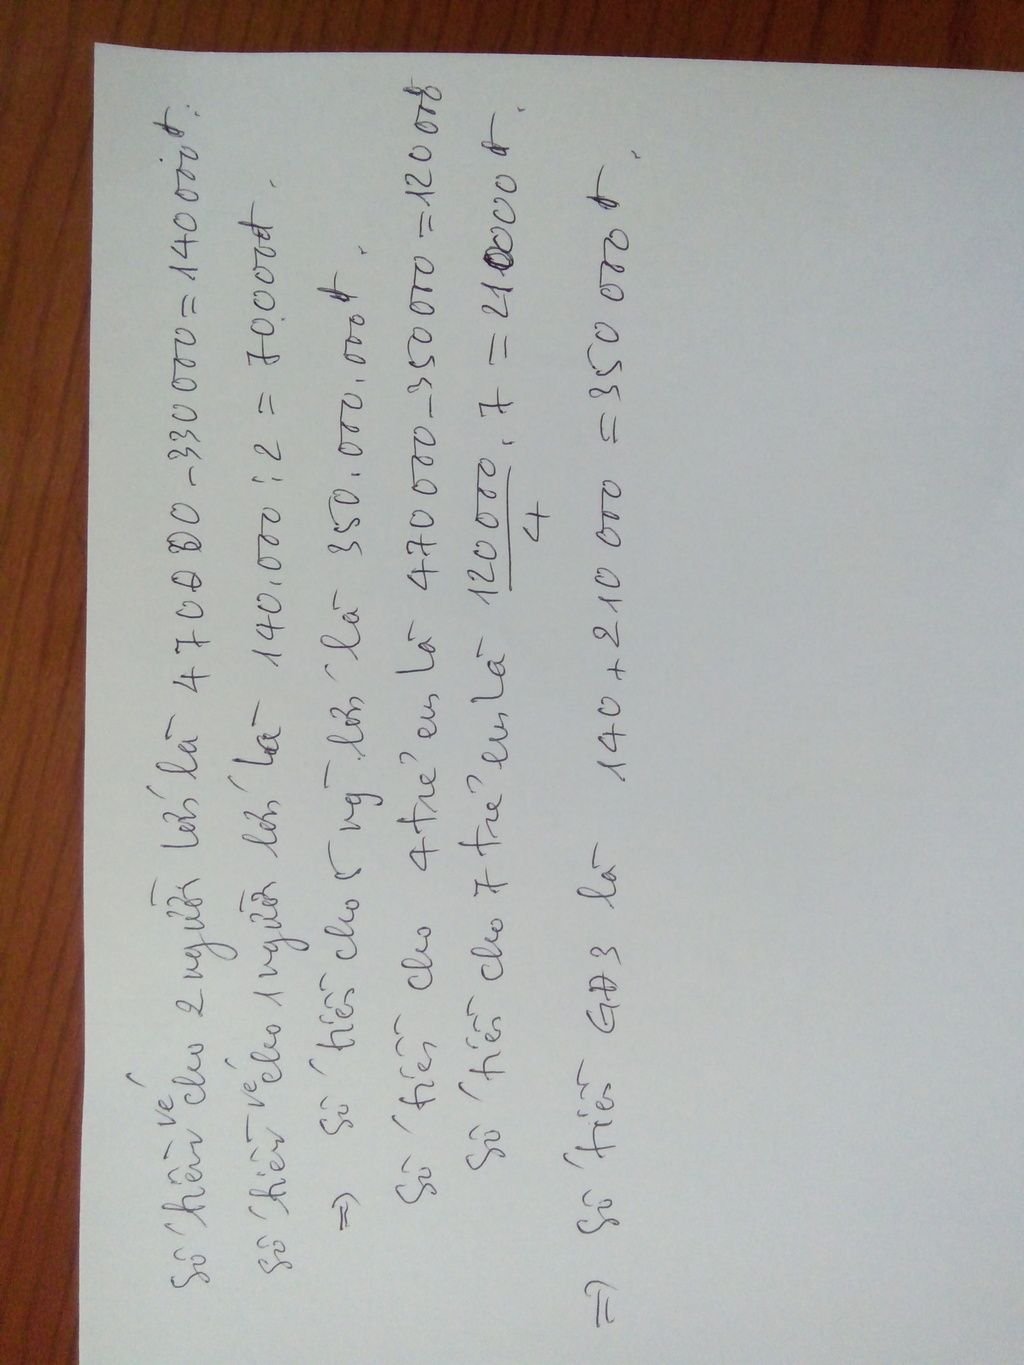 Số tiền vé cho 2 người lớn là 470000 - 330000 = 140000đ.
Số tiền vé cho 1 người lớn là 140.000 : 2 = 70.000đ.
=> Số tiền cho 5 ng lớn là 350.000.000đ.
Số tiền cho 4 trẻ em là 470000 - 350000 = 120000đ
Số tiền cho 7 trẻ em là 120000/4 . 7 = 210000đ.
=> Số tiền GĐ3 là 140 + 210000 = 350000đ.